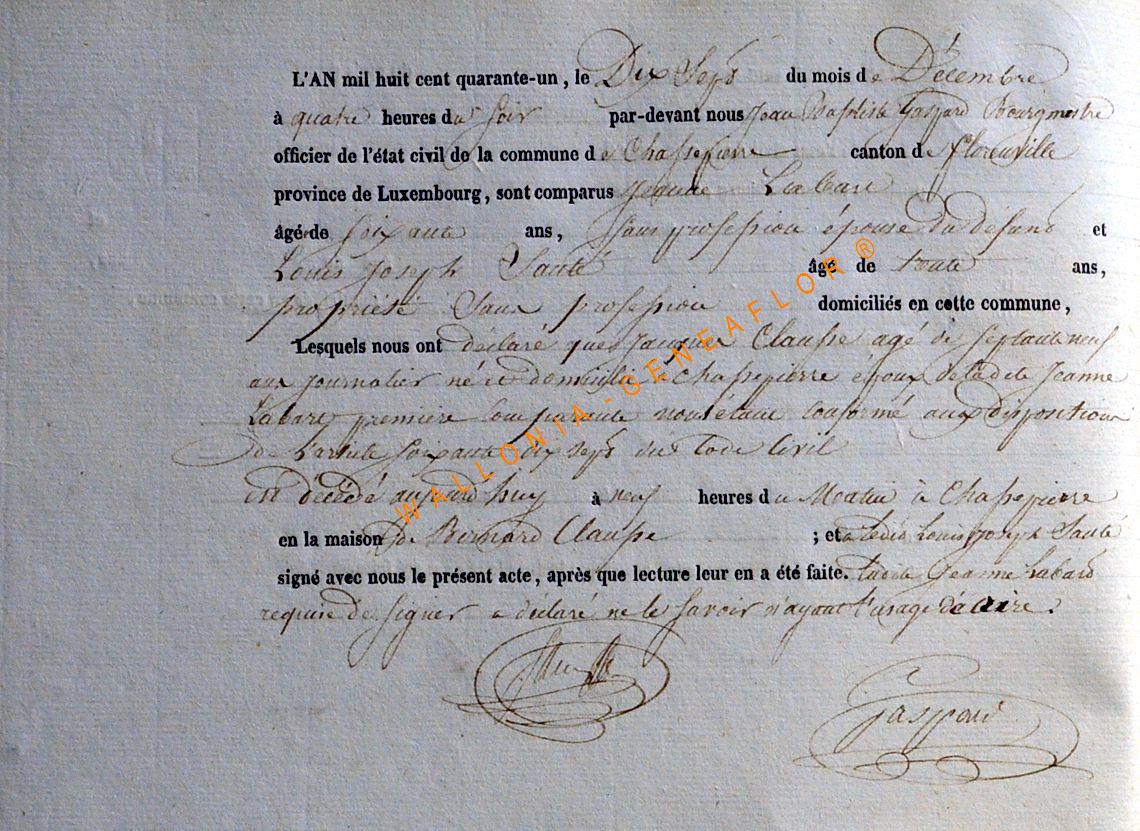 L'AN mil huit cent quarante-un, le Dix Sept du mois de Décembre
à quatre heures du Soir par-devant nous Jean Baptiste Gaspard Bourgmestre
officier de l'état civil de la commune de Chassepierre canton de Florenville
province de Luxembourg, sont comparus Jeanne Labare
âgé de Soixante ans, Sans profession épouse du defunt et
Louis Joseph Sauté âgé de trente ans,
propriété Sans profession domiciliés en cette commune,
Lesquels nous ont déclaré que Jacques Clausse agé de Septante neuf
ans Journalier né et domicilié à Chassepierre époux de ladite Jeanne
Labare première Comparante nous étant conformé aux dispositions
de l'article Soixante dix sept du Code Civil
est décédé aujourd'huy à neuf heures du Matin à Chassepierre
en la maison de Bernard Clausse ; et a ledit Louis Joseph Sauté
signé avec nous le présent acte, après que lecture leur en a été faite. Ladite Jeanne Labard
requise de Signer a déclaré ne le Savoir n'ayant l'usage
Gaspard
WALLONIA-GENEAFLOR ®